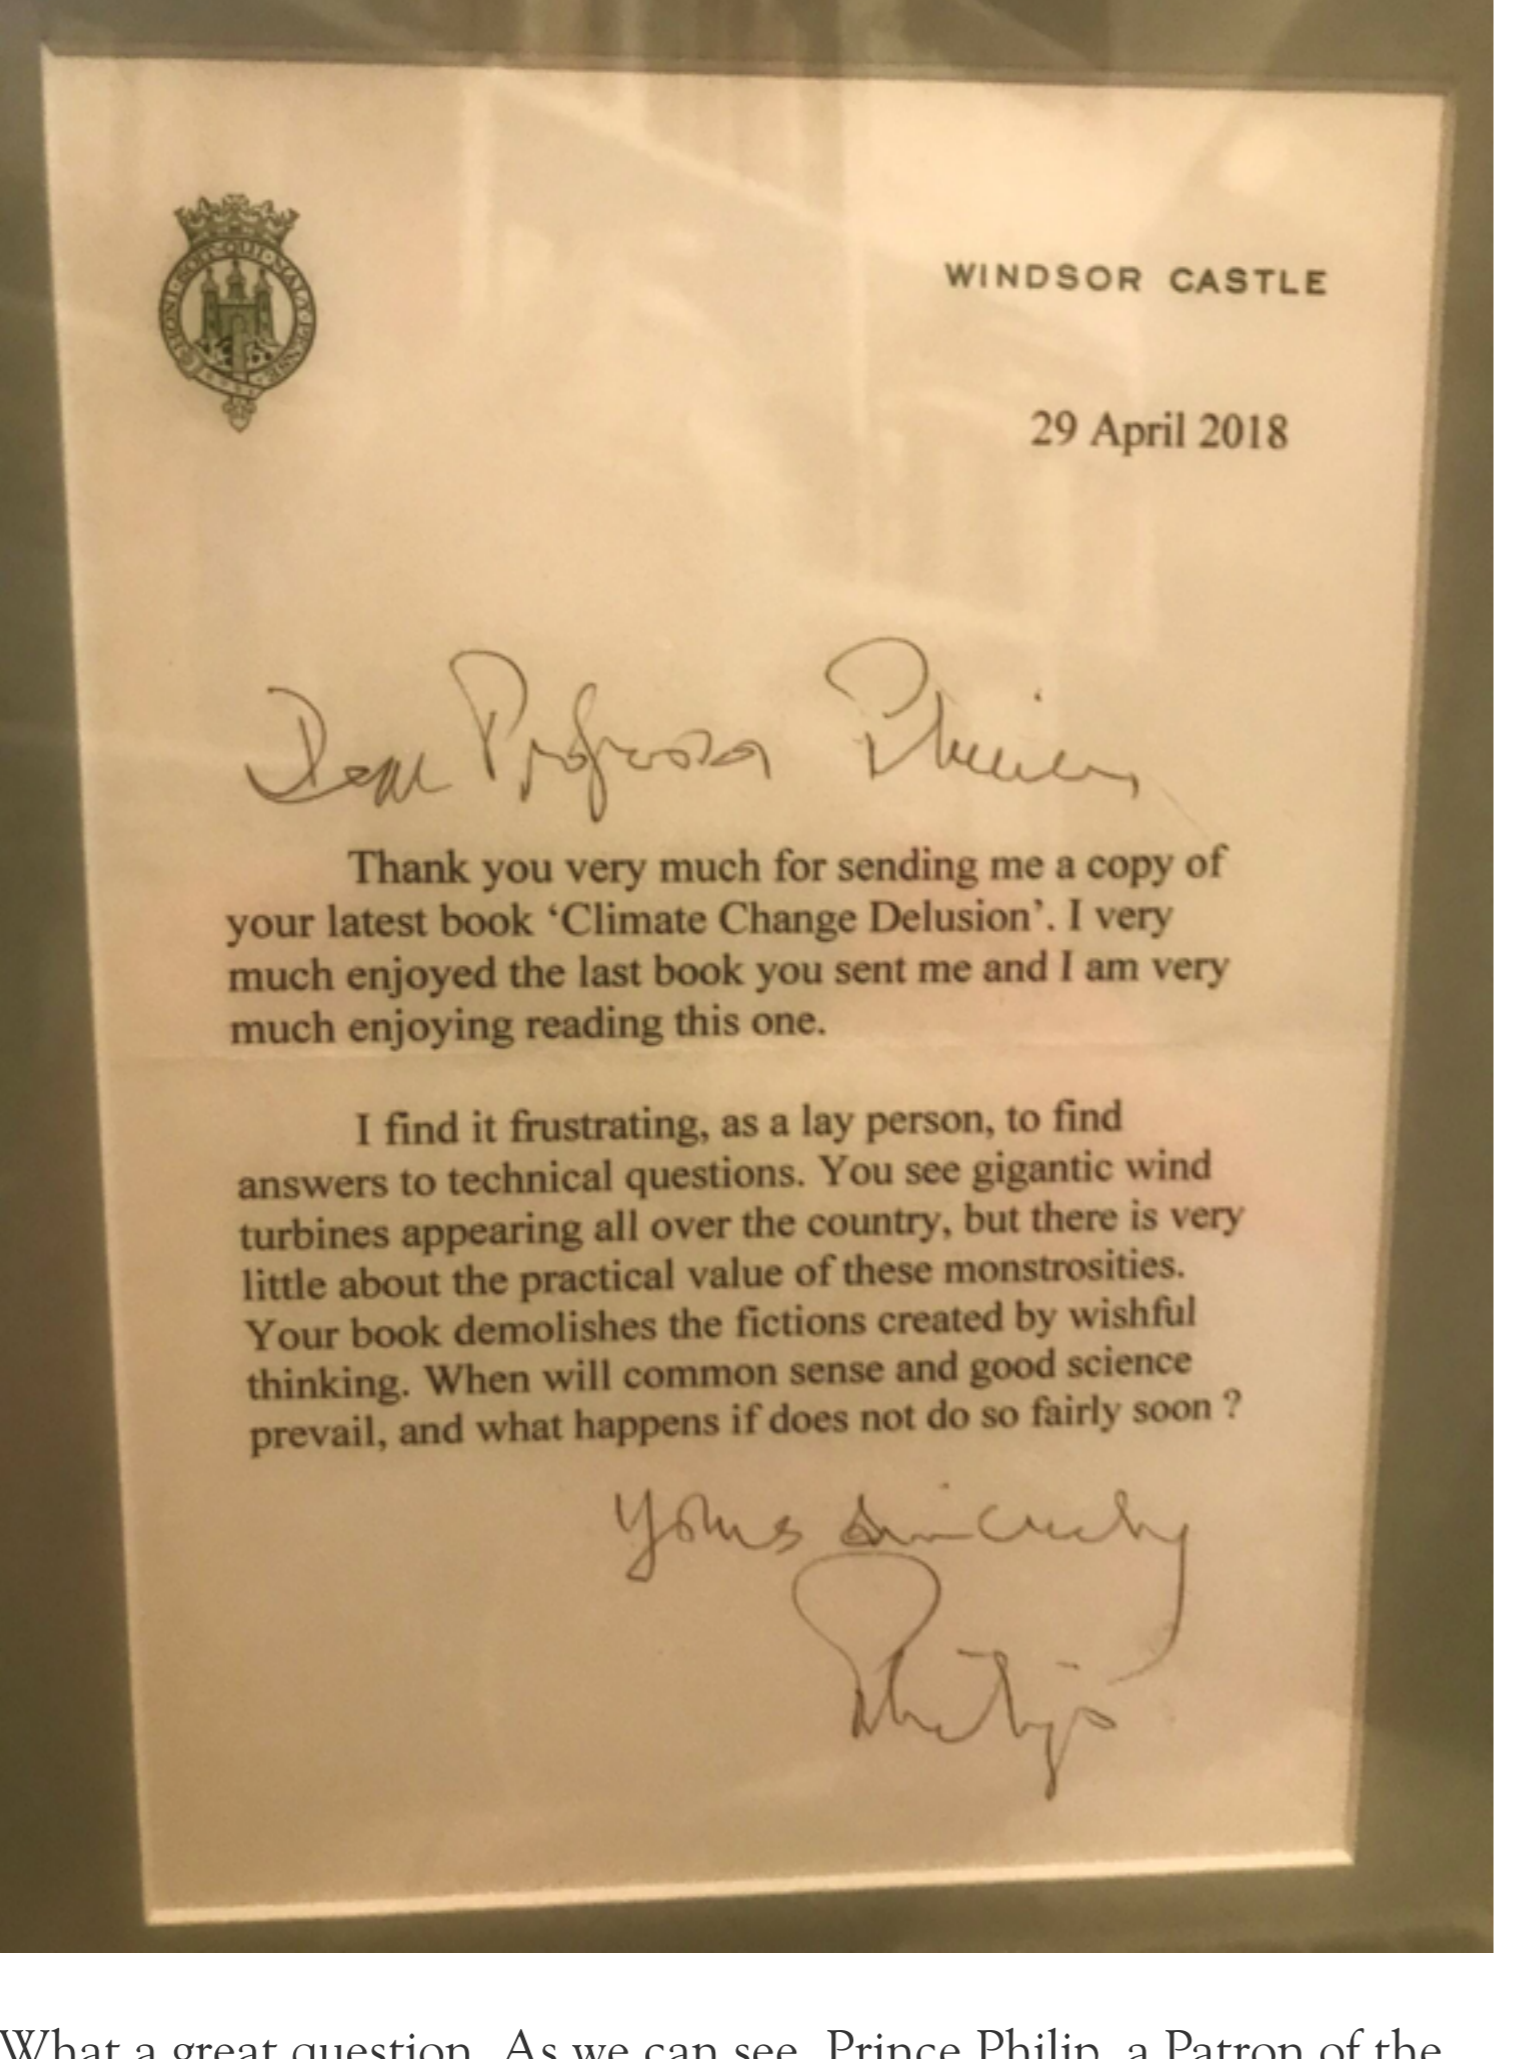 HONI·SOIT·QUI·MAL·Y·PENSE
WINDSOR CASTLE
29 April 2018
Dear Professor Plimer,
Thank you very much for sending me a copy of
your latest book ‘Climate Change Delusion’. I very
much enjoyed the last book you sent me and I am very
much enjoying reading this one.
I find it frustrating, as a lay person, to find
answers to technical questions. You see gigantic wind
turbines appearing all over the country, but there is very
little about the practical value of these monstrosities.
Your book demolishes the fictions created by wishful
thinking. When will common sense and good science
prevail, and what happens if does not do so fairly soon ?
Yours sincerely
Philip
What a great question. As we can see, Prince Philip, a Patron of the